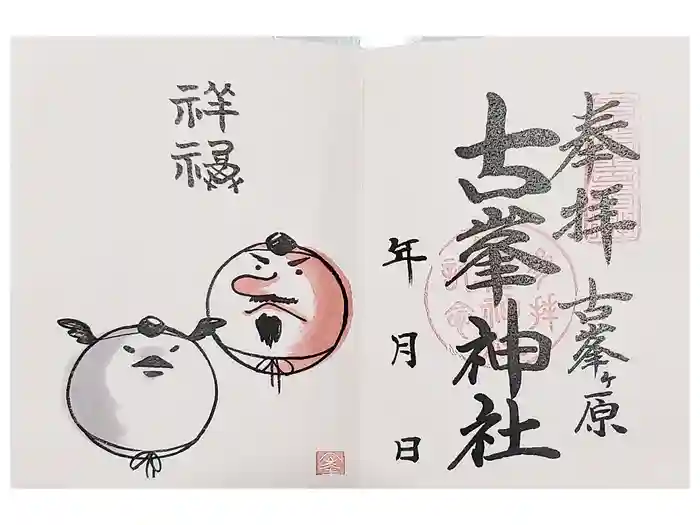 奉拝
古峯ヶ原
古峯神社
年 月 日
祥
禄